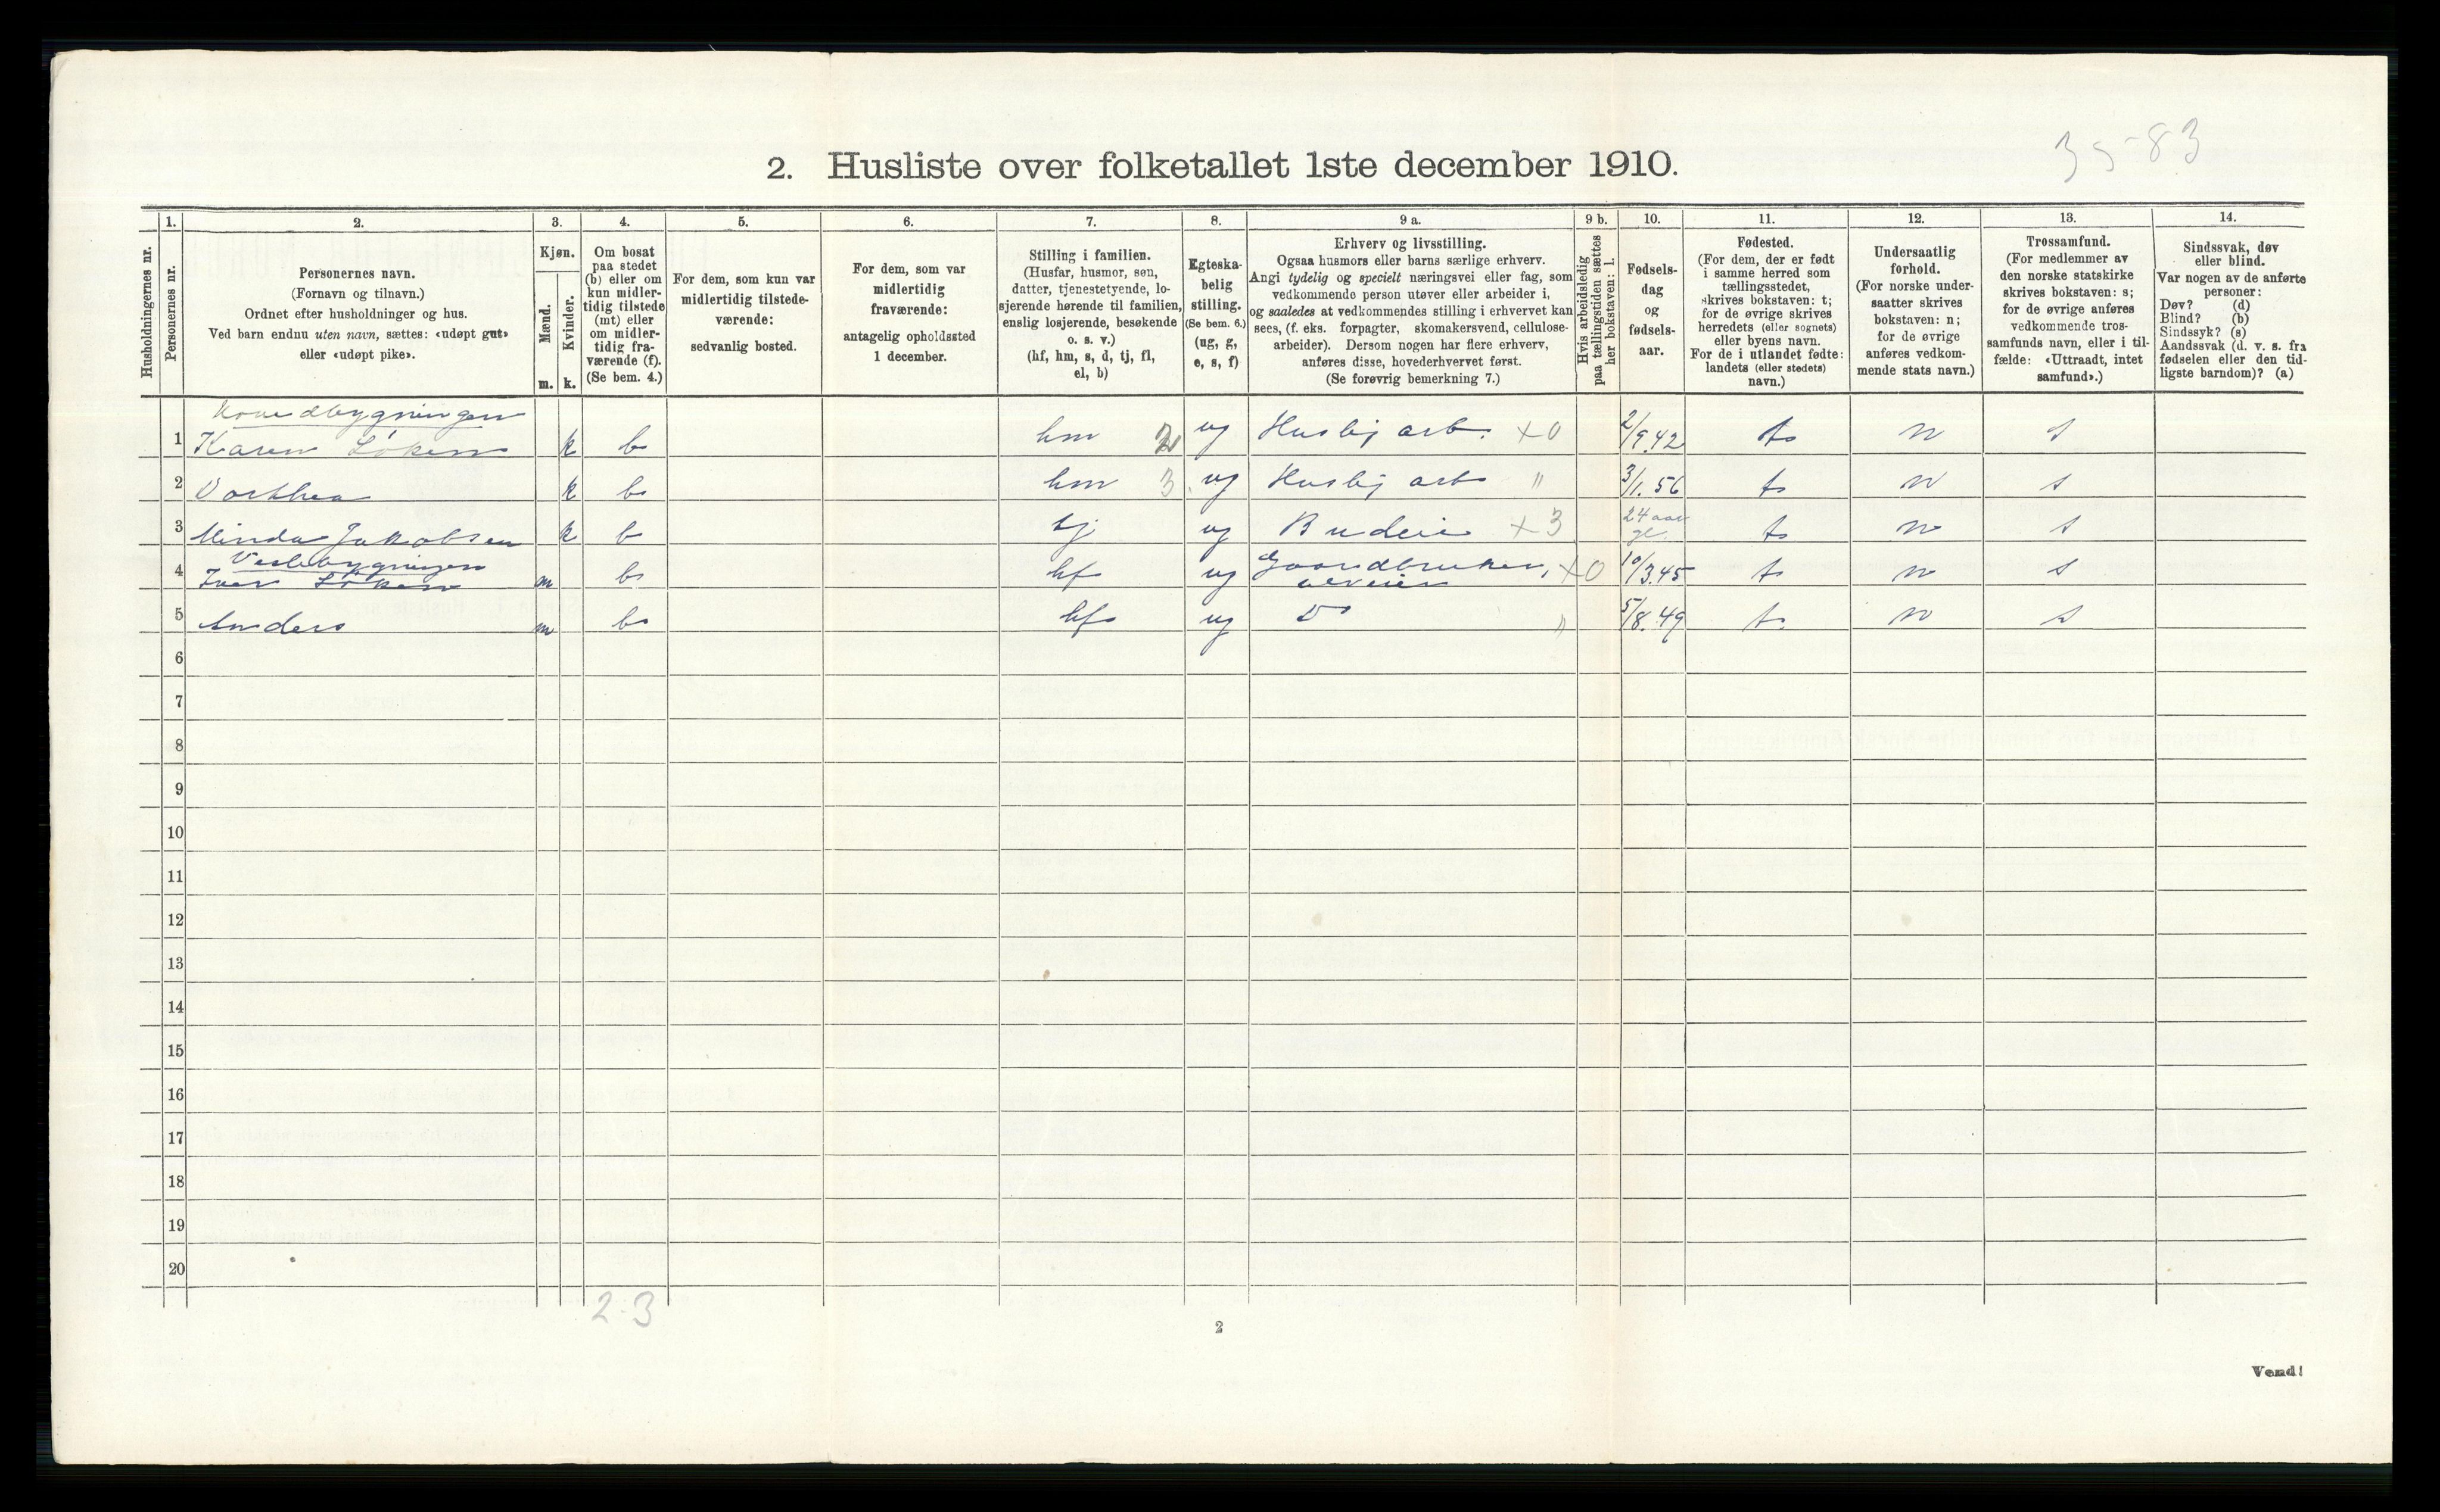 35-83
2. Husliste over folketallet 1ste december 1910.
Husholdningernes nr.
1.
Personernes nr.
2.
Personernes navn.
(Fornavn og tilnavn.)
Ordnet efter husholdninger og hus.
Ved barn endnu uten navn, sættes: «udøpt gut»
eller «udøpt pike».
3.
Kjøn.
Mænd.
Kvinder.
m. k.
4.
Om bosat
paa stedet
(b) eller om
kun midler-
tidig tilstede
(mt) eller
om midler-
tidig fra-
værende (f).
(Se bem. 4.)
5.
For dem, som kun var
midlertidig tilstede-
værende:
sedvanlig bosted.
6.
For dem, som var
midlertidig
fraværende:
antagelig opholdssted
1 december.
7.
Stilling i familien.
(Husfar, husmor, søn,
datter, tjenestetyende, lo-
sjerende hørende til familien,
enslig losjerende, besøkende
o. s. v.)
(hf, hm, s, d, tj, fl,
el, b)
8.
Egteska-
belig
stilling.
(Se bem. 6.)
(ug, g,
e, s, f)
9 a.
Erhverv og livsstilling.
Ogsaa husmors eller barns særlige erhverv.
Angi tydelig og specielt næringsvei eller fag, som
vedkommende person utøver eller arbeider i,
og saaledes at vedkommendes stilling i erhvervet kan
sees, (f. eks. forpagter, skomakersvend, cellulose-
arbeider). Dersom nogen har flere erhverv,
anføres disse, hovederhvervet først.
(Se forøvrig bemerkning 7.)
9 b.
Hvis arbeidsledig
paa tællingstiden sættes
her bokstaven: l.
10.
Fødsels-
dag
og
fødsels-
aar.
11.
Fødested.
(For dem, der er født
i samme herred som
tællingsstedet,
skrives bokstaven: t;
for de øvrige skrives
herredets (eller sognets)
eller byens navn.
For de i utlandet fødte:
landets (eller stedets)
navn.)
12.
Undersaatlig
forhold.
(For norske under-
saatter skrives
bokstaven: n;
for de øvrige
anføres vedkom-
mende stats navn.)
13.
Trossamfund.
(For medlemmer av
den norske statskirke
skrives bokstaven: s;
for de øvrige anføres
vedkommende tros-
samfunds navn, eller i til-
fælde: «Uttraadt, intet
samfund».)
14.
Sindssvak, døv
eller blind.
Var nogen av de anførte
personer:
Døv? (d)
Blind? (b)
Sindssyk? (s)
Aandssvak (d. v. s. fra
fødselen eller den tid-
ligste barndom)? (a)
Hovedbygningen
1 Karen Løken k b hm 2 ug Huslig arb. +0 2/9.42 t n s
2 Dorthea k b hm 3 ug Huslig arb " 3/1.56 t n s
3 Minda Jakobsen k b tj ug Budeie +3 24 aar gl. t n s
Vestbygningen
4 Iver Løken m b hf ug Gaardbruker, selveier +0 10/3.45 t n s
5 Anders m b hf ug Do " 5/8.49 t n s
6
7
8
9
10
11
12
13
14
15
16
17
18
19
20
2-3
2
Vend!